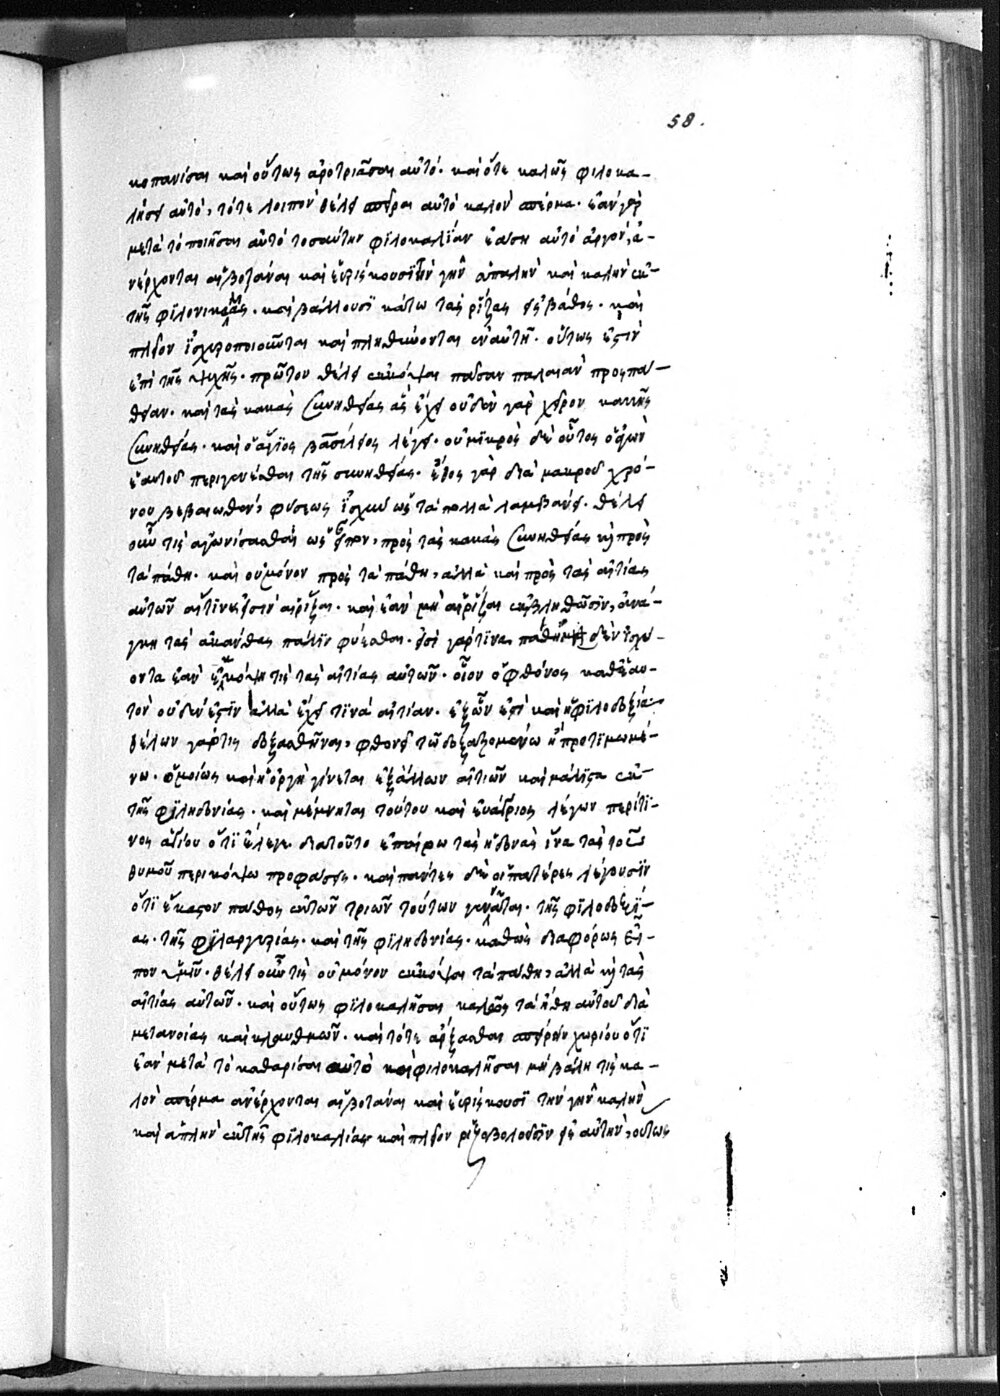 58.
κοπανίσαι καὶ οὕτως ἀροτριᾶσαι αὐτό· καὶ ὅτε καλῶς φιλοκα-
λήσει αὐτό, τότε λοιπὸν θέλει σπεῖραι αὐτὸ καλὸν σπέρμα· ἐὰν γὰρ
μετὰ τὸ ποιῆσαι αὐτὸ τοσαύτην φιλοκαλίαν ἐάσῃ αὐτὸ ἀργόν, ἀ-
νέρχονται αἱ βοτάναι καὶ εὑρίσκουσι τὴν γῆν ἁπαλὴν καὶ καλὴν ἐκ
τῆς φιλονικίας· καὶ βάλλουσι κάτω τὰς ρίζας εἰς βάθος· καὶ
πλεῖον ἰσχυροποιοῦνται καὶ πληθύνονται ἐν αὐτῇ· οὕτως ἐστὶν
ἐπὶ τῆς ψυχῆς· πρῶτον θέλει ἐκκόψαι πᾶσαν παλαιὰν προσπά-
θειαν· καὶ τὰς κακὰς συνηθείας ἃς ἔχει οὐδὲν γὰρ χεῖρον κακῆς
συνηθείας· καὶ ὁ ἅγιος βασίλειος λέγει· οὐ μικρὸς δὲ οὗτος ὁ ἀγὼν
ἑαυτοῦ περιγενέσθαι τῆς συνηθείας· ἔθος γὰρ διὰ μακροῦ χρό-
νου βεβαιωθὲν, φύσεως ἰσχὺν ὡς τὰ πολλὰ λαμβάνει· θέλει
οὖν τις ἀγωνίσασθαι ὡς εἶπον, πρὸς τὰς κακὰς συνηθείας κὶ πρὸς
τὰ πάθη· καὶ οὐ μόνον πρὸς τὰ πάθη, ἀλλὰ καὶ πρὸς τὰς αἰτίας
αὐτῶν αἵτινες εἰσὶν αἱ ρίζαι· καὶ ἐὰν μὴ αἱ ρίζαι ἐκβληθῶσιν, ἀνά-
γκη τὰς ἀκάνθας πάλιν φύεσθαι· εἰσὶ γάρ τινα πάθη μὴ δὲν ἰσχύ-
οντα ἐὰν ἐκκόψῃ τις τὰς αἰτίας αὐτῶν· οἷον ὁ φθόνος καθ' ἑαυ-
τὸν οὐδέν ἐστιν ἀλλὰ ἔχει τινὰ αἰτίαν· ἐξ ὧν ἐστὶ καὶ ἡ φιλοδοξία·
θέλων γάρ τις δοξασθῆναι, φθονεῖ τῷ δοξαζομένῳ ἢ προτιμωμέ-
νῳ· ὁμοίως καὶ ἡ ὀργὴ γίνεται ἐξ ἄλλων αἰτιῶν καὶ μάλιστα ἐκ
τῆς φιληδονίας· καὶ μέμνηται τούτου καὶ εὐάγριος λέγων περί τι-
νος ἁγίου ὅτι ἔλεγε διατοῦτο ἐπαίρω τὰς ἡδονὰς ἵνα τὰς τοῦ
θυμοῦ περικόψω προφάσεις· καὶ πάντες δὲ οἱ πατέρες λέγουσιν
ὅτι ἕκαστον πάθος ἐκ τῶν τριῶν τούτων γεννᾶται· τῆς φιλοδοξί-
ας· τῆς φιλαργυρίας· καὶ τῆς φιληδονίας· καθὼς διαφόρως εἶ-
πον ὑμῖν· θέλει οὖν τις οὐ μόνον ἐκκόψαι τὰ πάθη, ἀλλὰ κὶ τὰς
αἰτίας αὐτῶν· καὶ οὕτως φιλοκαλῆσαι καλῶς τὰ ἤθη αὐτοῦ διὰ
μετανοίας καὶ κλαυθμῶν· καὶ τότε ἄρξασθαι σπείρειν χωρίου ὅτι
ἐὰν μετὰ τὸ καθαρίσαι αὐτὸ καὶ φιλοκαλῆσαι μὴ βάλῃ τις κα-
λὸν σπέρμα ἀνέρχονται αἱ βοτάναι καὶ εὑρίσκουσι τὴν γῆν καλὴν
καὶ ἁπλὴν ἐκ τῆς φιλοκαλίας καὶ πλεῖον ριζοβολοῦσιν εἰς αὐτὴν, οὕτως